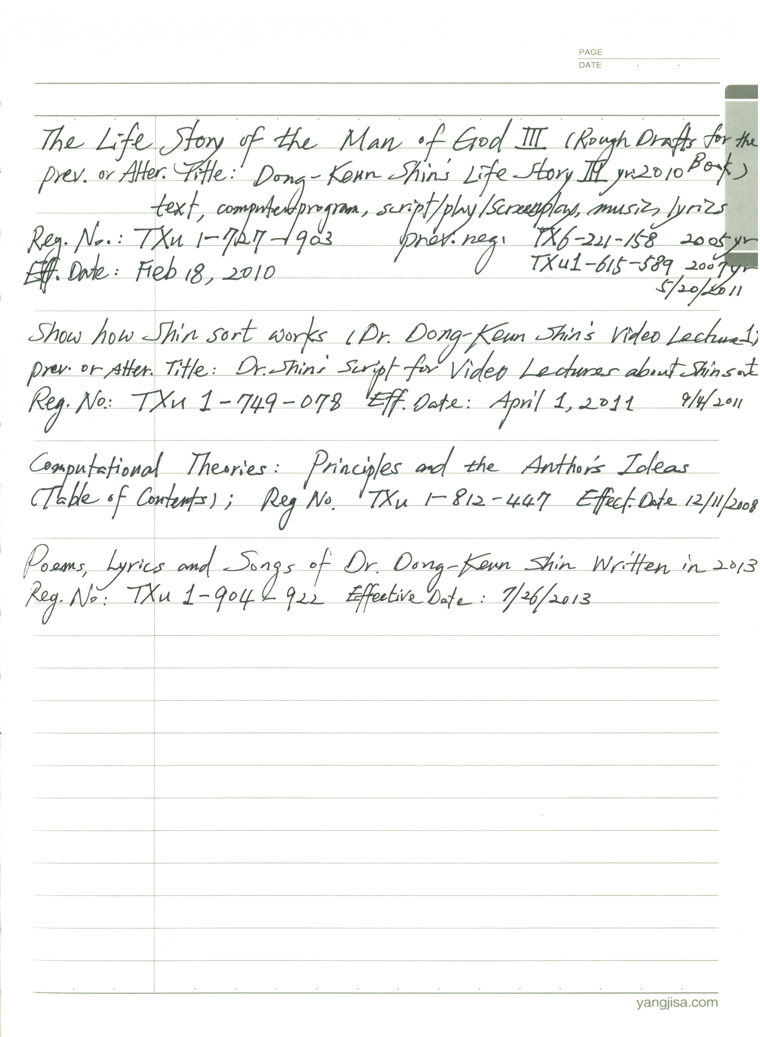 PAGE
DATE . .
The Life Story of the Man of God III (Rough Drafts for the
prev. or Alter. Title: Dong-Keun Shin's Life Story III yr.2010 Book)
text, computer program, script/play/screenplay, music, lyrics
Reg. No.: TXu 1-727-903 prev. reg. TX6-221-158 2005yr
Eff. Date: Feb 18, 2010 TXu1-615-589 2007yr
5/20/2011
Show how Shin sort works (Dr. Dong-Keun Shin's Video Lecture1)
prev. or Alter. Title: Dr. Shin's Script for Video Lectures about Shinsort
Reg. No: TXu 1-749-078 Eff. Date: April 1, 2011 9/4/2011
Computational Theories: Principles and the Author's Ideas
(Table of Contents); Reg No. TXu 1-812-447 Effect. Date 12/11/2008
Poems, Lyrics and Songs of Dr. Dong-Keun Shin Written in 2013
Reg. No: TXu 1-904-922 Effective Date: 7/26/2013
yangjisa.com